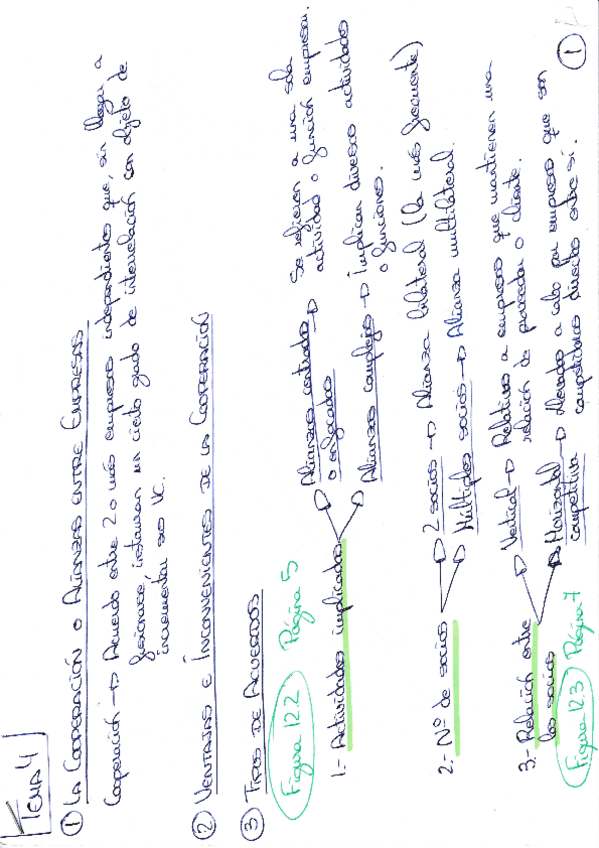 TEMA 4
① LA COOPERACIÓN O ALIANZAS ENTRE EMPRESAS
Cooperación → Acuerdo entre 2 o más empresas independientes que, sin llegar a
fusionarse, instauran un cierto grado de interrelación con objeto de
incrementar sus VC.
② VENTAJAS E INCONVENIENTES DE LA COOPERACIÓN
③ TIPOS DE ACUERDOS
Figura 12.2 Página 5
1.- Actividades implicadas
Alianzas centradas → Se refieren a una sola
o enfocadas actividad o función empresari.
Alianzas complejas → Implican diversas actividades
o funciones.
2.- Nº de socios
2 socios → Alianza bilateral (la más frecuente)
Múltiples socios → Alianza multilateral.
3.- Relación entre
los socios
Vertical → Relativas a empresas que mantienen una
relación de proveedor o cliente.
Horizontal → Llevadas a cabo por empresas que son
competitiva competidoras directas entre sí.
Figura 12.3 Página 7
①